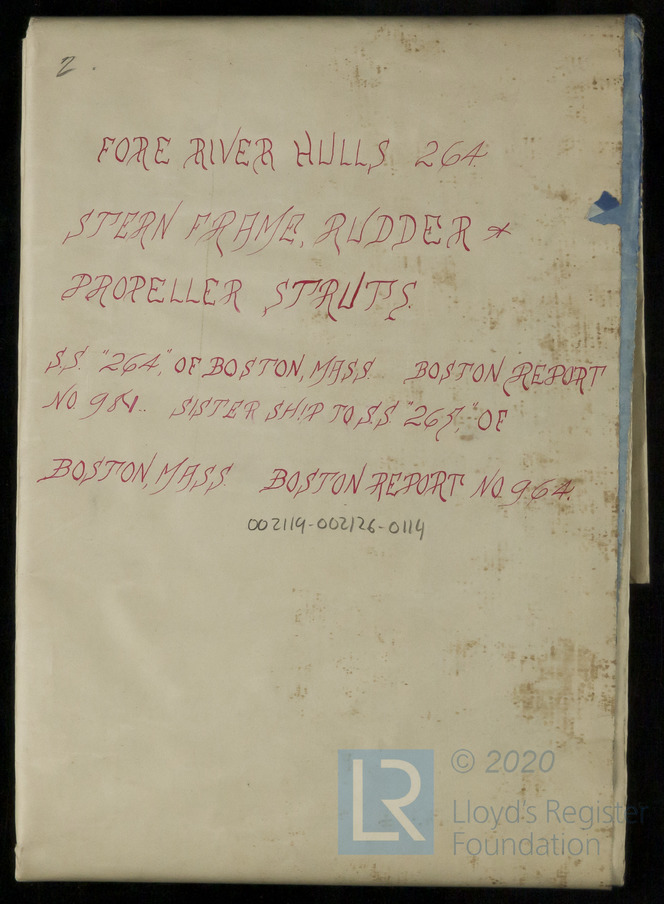 2.
FORE RIVER HULLS 264
STERN FRAME, RUDDER &
PROPELLER STRUTS.
S.S. "264," OF BOSTON, MASS. BOSTON REPORT
NO. 981.. SISTER SHIP TO S.S. "265," OF
BOSTON, MASS. BOSTON REPORT NO. 964.
002119-002126-0114
LR
© 2020
Lloyd's Register
Foundation